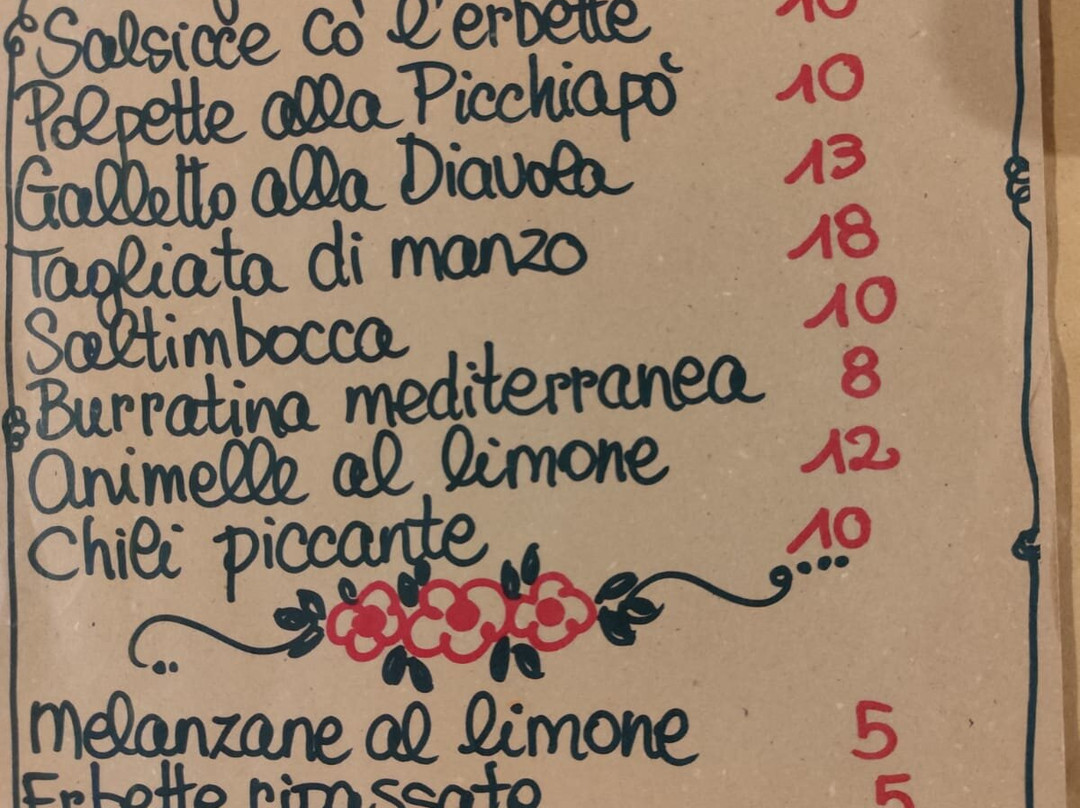 Salsicce co' l'erbette 10
Polpette alla Picchiapò 10
Galletto alla Diavola 13
Tagliata di manzo 18
Saltimbocca 10
Burratina mediterranea 8
Animelle al limone 12
Chili piccante 10
Melanzane al limone 5
Erbette ripassate 5